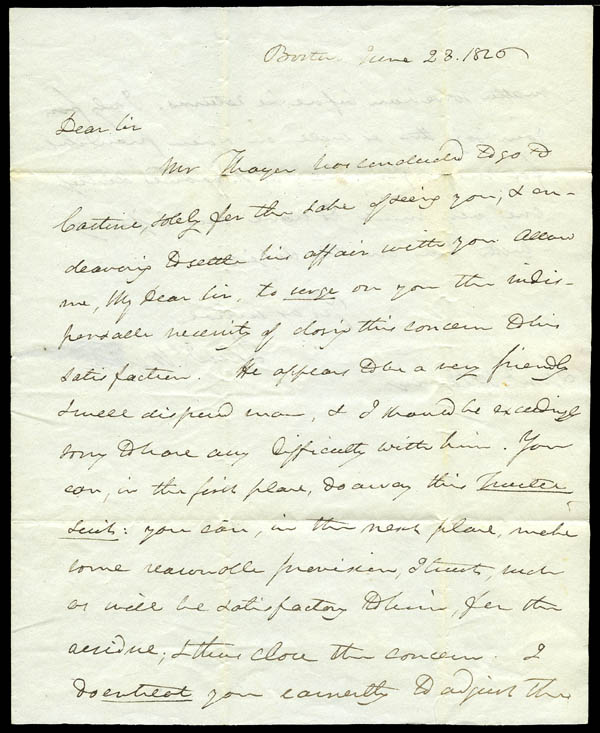 Boston June 23. 1826
Dear Sir
Mr Thayer has concluded to go to
Castine, solely for the sake of seeing you, & en-
deavoring to settle his affair with you. Allow
me, My Dear Sir, to urge on you the indis-
pensable necessity of closing this concern to his
satisfaction. He appears to be a very friendly
& well disposed man, & I should be exceedingly
sorry to have any difficulty with him. You
can, in the first place, do away this Trustee
Suit: you can, in the next place, make
some reasonable provision, I trust, such
as will be satisfactory to him, for the
residue; & thus close the concern. I
do entreat you earnestly to adjust this